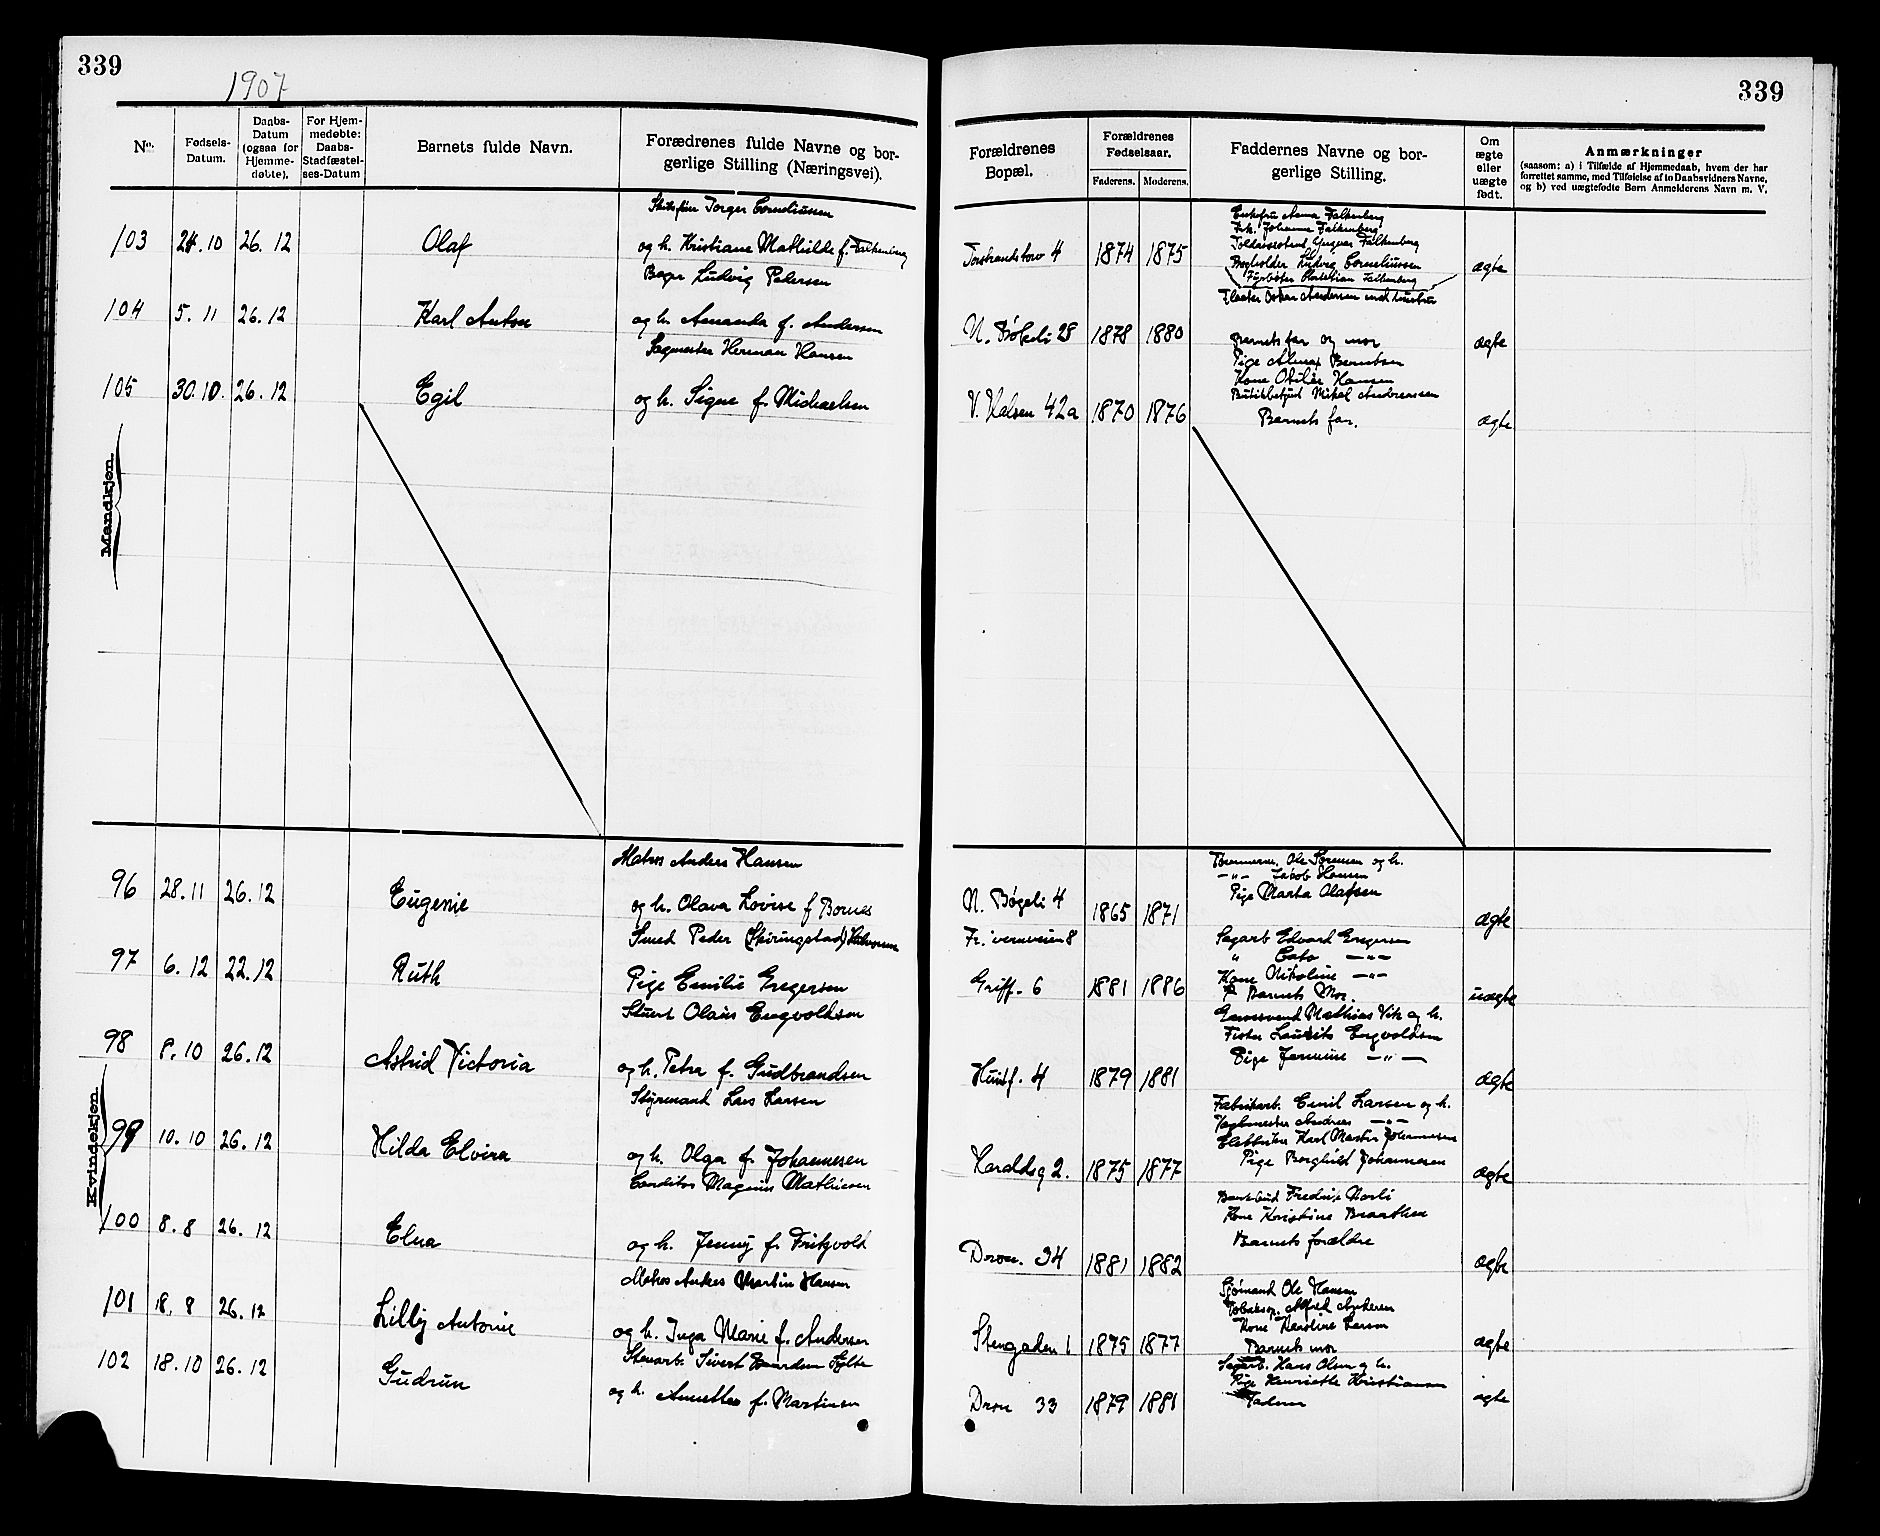 339
1907
No.
Fødsels-
Datum.
Daabs-
Datum
(ogsaa for
Hjemme-
døbte).
For Hjem-
medøbte:
Daabs-
Stadfæstel-
ses-Datum
Barnets fulde Navn.
Forædrenes fulde Navne og bor-
gerlige Stilling (Næringsvei).
103 24.10 26.12 Olaf
Jørger Corneliussen
og h. Kristiane Mathilde f. Falkenberg
104 5.11 26.12 Karl Anton
Bager Ludvig Pedersen
og h. Amanda f. Andersen
105 30.10. 26.12 Egil
Sagmester Herman Hansen
og h. Signe f. Michaelsen
Mandkjøn.
96 28.11 26.12 Eugenie
Matros Anders Hansen
og h. Olava Lovise f Bornes
97 6.12 22.12 Ruth
Smed Peder (Skiringstad) Halvorsen
Pige Emilie Gregersen
98 8.10 26.12 Astrid Victoria
Stuert Olaus Engvoldsen
og h. Petra f. Gudbrandsen
Kvindekjøn.
99 10.10 26.12 Hilda Elvira
Styrmand Lars Larsen
og h. Olga f. Johannesen
100 8.8 26.12 Elna
Conditor Magnus Mathiesen
og h. Jenny f. Fritzvold
101 18.8 26.12 Lilly Antonie
Matros Anders Martin Hansen
og h. Inga Marie f. Andersen
102 18.10 26.12 Gudrun
Stenarb. Sivert
og h. Annette f. Martinsen
339
Forældrenes
Bopæl.
Forældrenes
Fødselsaar.
Faderens. Moderens.
Faddernes Navne og bor-
gerlige Stilling.
Om
ægte
eller
uægte
født.
Anmærkninger
(saasom: a) i Tilfælde af Hjemmedaab, hvem der har
forrettet samme, med Tilføielse af to Daabsvidners Navne,
og b) ved uægtefødte Børn Anmelderens Navn m. V.
Torstrandstorv 4 1874 1875
Enkefru Anna Falkenberg
Frk. Johanne Falkenberg
Toldassistent Yngvar Falkenberg
Bogholder Ludvig Corneliussen
Fyrbøter Kristian Falkenberg
ægte
N. Bøkeli 28 1878 1880
Oskar Andersen med hustru
Barnets far og mor
ægte
V. Halsen 42a 1870 1876
Pige Alma Berntsen
Kone Otilie Hansen
Mikal Andreassen
Barnets far.
ægte
N. Bøgeli 4 1865 1871
Tømmerm. Ole Sørensen og h.
-"- Jakob Hansen
Pige Marta Olafsen
ægte
Griff. 6 1881 1886
Sagarb Edvard Gregersen
" Cato -"-
Kone Nikoline -"-
Barnets Mor.
uægte
Huitf. 4 1879 1881
Mathias Vik og h.
Fisker Laurits Engvoldsen
Pige Jermine -"-
ægte
Haraldsg 2. 1875 1877
Fabrikarb. Emil Larsen og h.
Andreas -"-
Karl Martin Johannesen
Pige Borghild Johannesen
ægte
Dron. 34 1881 1882
Fredrik Norli
Kone Kristine Braathen
Barnets forældre
ægte
Stengaden 1 1875 1877
Sjømand Ole Hansen
Alfred Andersen
Kone Karoline Larsen
Barnets mor
ægte
Dron 33 1879 1881
Sagarb. Hans Olsen og h.
Pige Henriette Kristiansen
Faderen
ægte